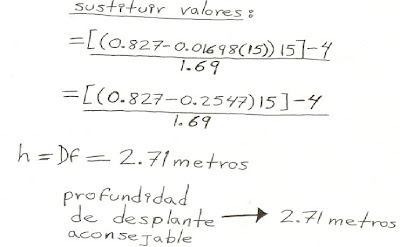 sustituir valores:
=[(0.827-0.01698(15))15]-4
1.69
=[(0.827-0.2547)15]-4
1.69
h=Df= 2.71 metros
profundidad
de desplante → 2.71 metros
aconsejable